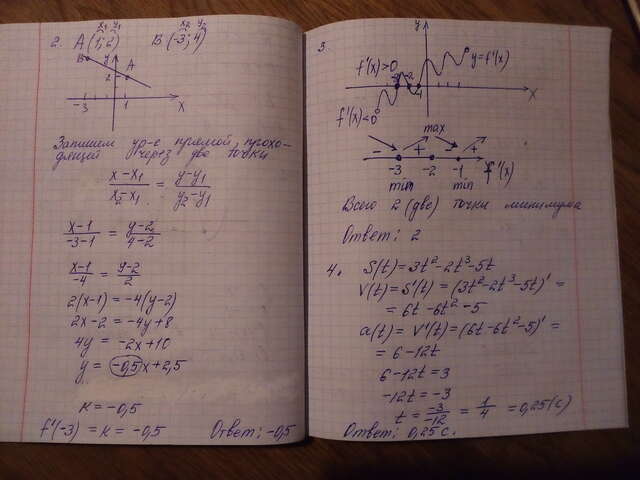 x₁ y₁ x₂ y₂
2. A(1; 2) B(-3; 4)
y
B
2 A
-3 1 x
Запишем ур-е прямой, прохо-
дящей через две точки
(x-x₁)/(x₂-x₁) = (y-y₁)/(y₂-y₁)
(x-1)/(-3-1) = (y-2)/(4-2)
(x-1)/(-4) = (y-2)/2
2(x-1) = -4(y-2)
2x-2 = -4y+8
4y = -2x+10
y = -0,5x+2,5
к = -0,5
f'(-3) = к = -0,5 Ответ: -0,5
3.
y
f'(x)>0 y=f'(x)
-3 -2
-1 x
f'(x)<0
max
- + - +
-3 -2 -1 f'(x)
min min
Всего 2 (две) точки минимума
Ответ: 2
4. S(t)=3t²-2t³-5t
V(t)=S'(t)=(3t²-2t³-5t)'=
=6t-6t²-5
a(t)=V'(t)=(6t-6t²-5)'=
=6-12t
6-12t=3
-12t=-3
t = -3/-12 = 1/4 = 0,25(с)
Ответ: 0,25 с.